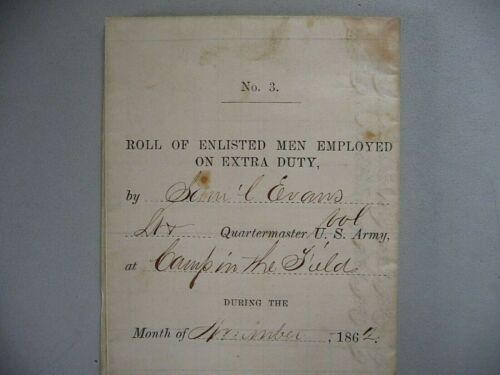 No. 3.
ROLL OF ENLISTED MEN EMPLOYED
ON EXTRA DUTY,
by Sam'l Evans
Quartermaster Vol U. S. Army,
at Camp in the Field
DURING THE
Month of November, 1862.